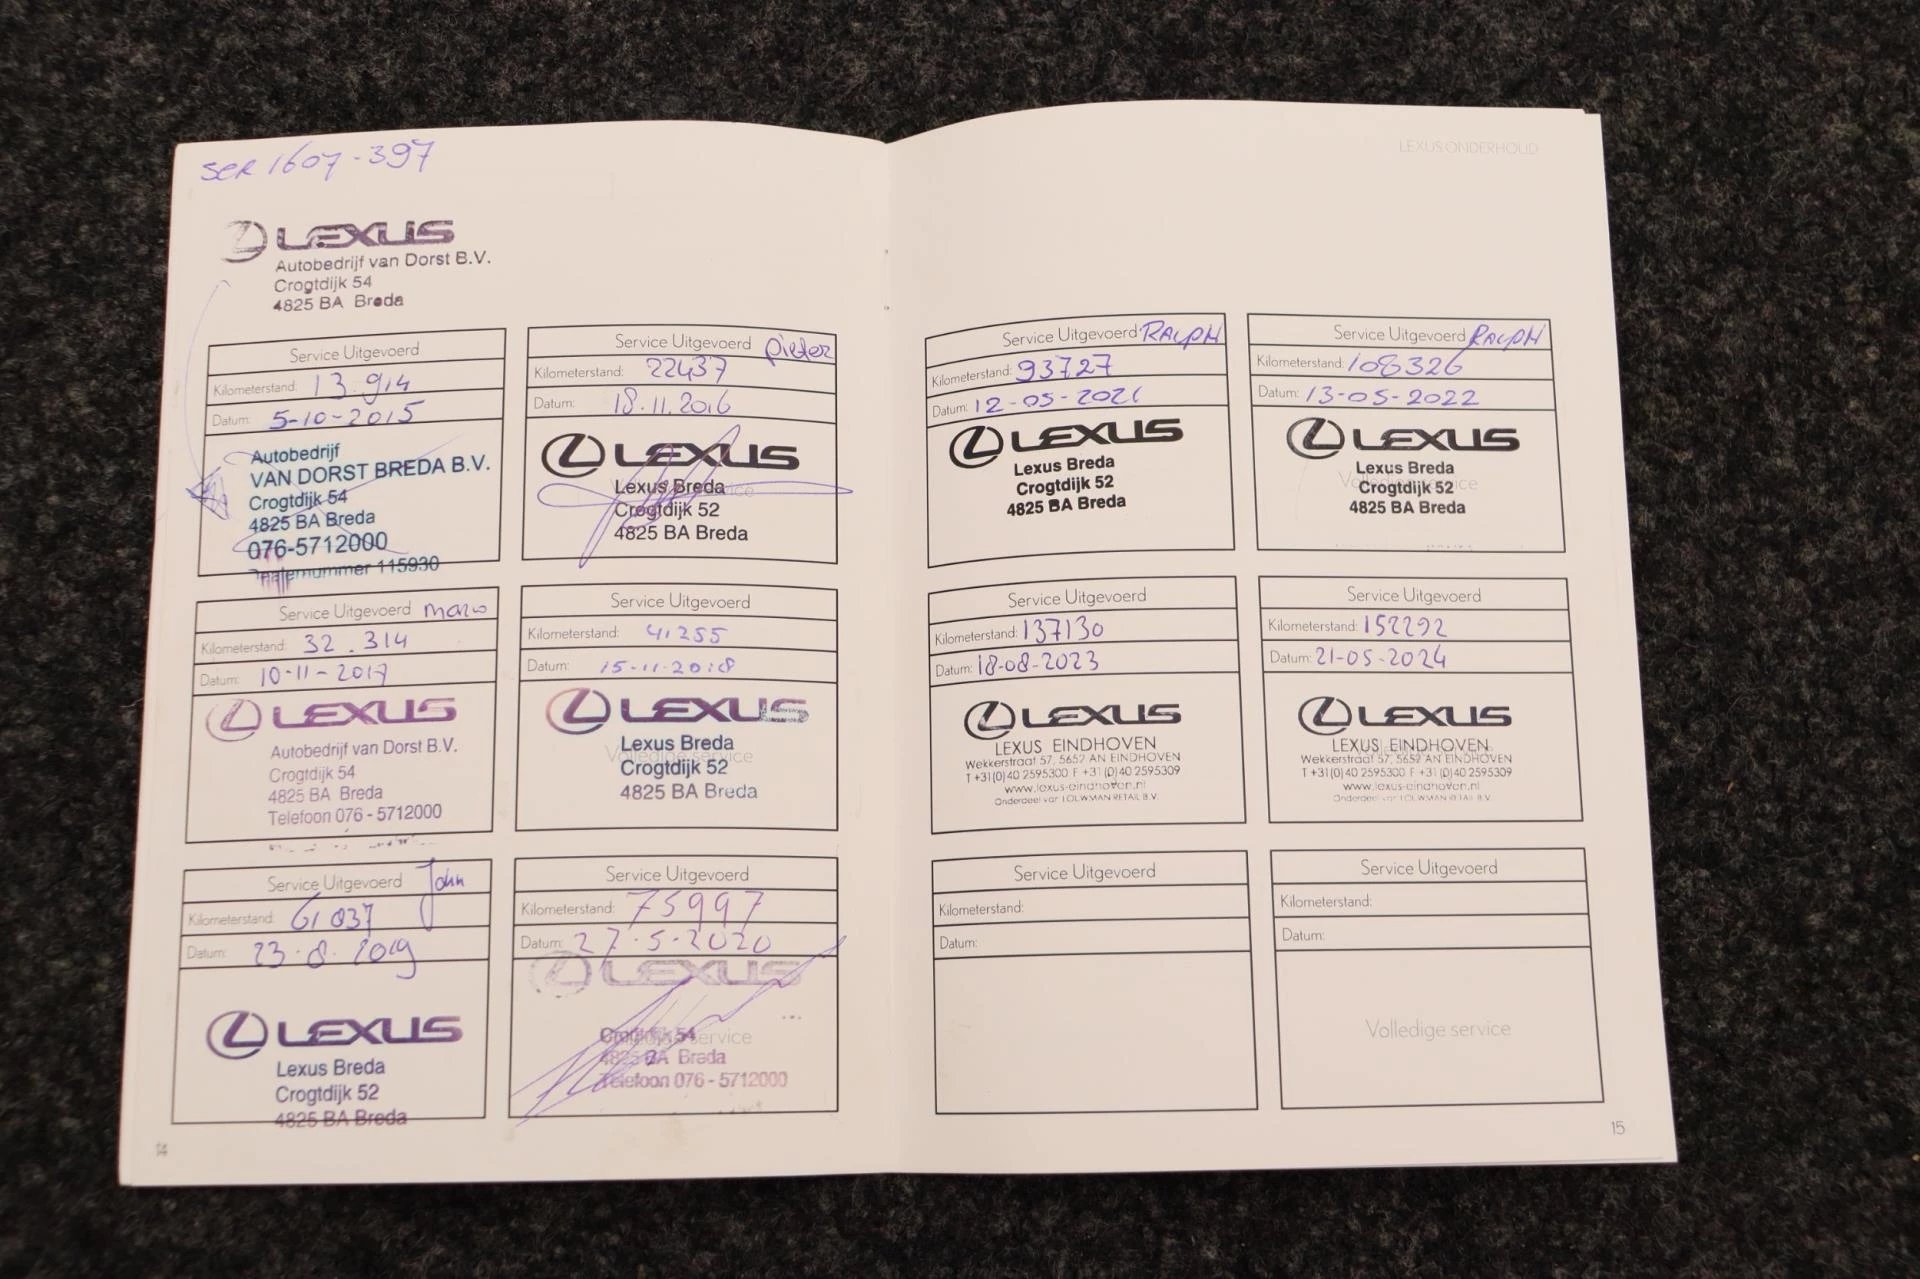 SER 1607-397
LEXUS
Autobedrijf van Dorst B.V.
Crogtdijk 54
4825 BA Breda
Service Uitgevoerd
Kilometerstand: 13.914
Datum: 5-10-2015
Autobedrijf
VAN DORST BREDA B.V.
Crogtdijk 54
4825 BA Breda
076-5712000
115930
Service Uitgevoerd Pieter
Kilometerstand: 22437
Datum: 18.11.2016
LEXUS
Lexus Breda
Crogtdijk 52
4825 BA Breda
Service Uitgevoerd
Kilometerstand: 32.314
Datum: 10-11-2017
LEXUS
Autobedrijf van Dorst B.V.
Crogtdijk 54
4825 BA Breda
Telefoon 076 - 5712000
Service Uitgevoerd
Kilometerstand: 41255
Datum: 15-11-2018
LEXUS
Lexus Breda
Volledige service
Crogtdijk 52
4825 BA Breda
Service Uitgevoerd John
Kilometerstand: 61037
Datum: 23-8-2019
LEXUS
Lexus Breda
Crogtdijk 52
4825 BA Breda
Service Uitgevoerd
Kilometerstand: 75997
Datum: 27-5-2020
LEXUS
Crogtdijk 54
4825 BA Breda
Telefoon 076 - 5712000
14
LEXUS ONDERHOUD
Service Uitgevoerd RALPH
Kilometerstand: 93727
Datum: 12-05-2021
LEXUS
Lexus Breda
Crogtdijk 52
4825 BA Breda
Service Uitgevoerd RALPH
Kilometerstand: 108326
Datum: 13-05-2022
LEXUS
Lexus Breda
Volledige service
Crogtdijk 52
4825 BA Breda
Service Uitgevoerd
Kilometerstand: 137130
Datum: 18-08-2023
LEXUS
LEXUS EINDHOVEN
Wekkerstraat 57, 5652 AN EINDHOVEN
T +31(0)40 2595300 F +31(0)40 2595309
www.lexus-eindhoven.nl
Onderdeel van LOUWMAN RETAIL B.V.
Service Uitgevoerd
Kilometerstand: 152292
Datum: 21-05-2024
LEXUS
LEXUS EINDHOVEN
Wekkerstraat 57, 5652 AN EINDHOVEN
T +31(0)40 2595300 F +31(0)40 2595309
www.lexus-eindhoven.nl
Onderdeel van LOUWMAN RETAIL B.V.
Service Uitgevoerd
Kilometerstand:
Datum:
Service Uitgevoerd
Kilometerstand:
Datum:
Volledige service
15